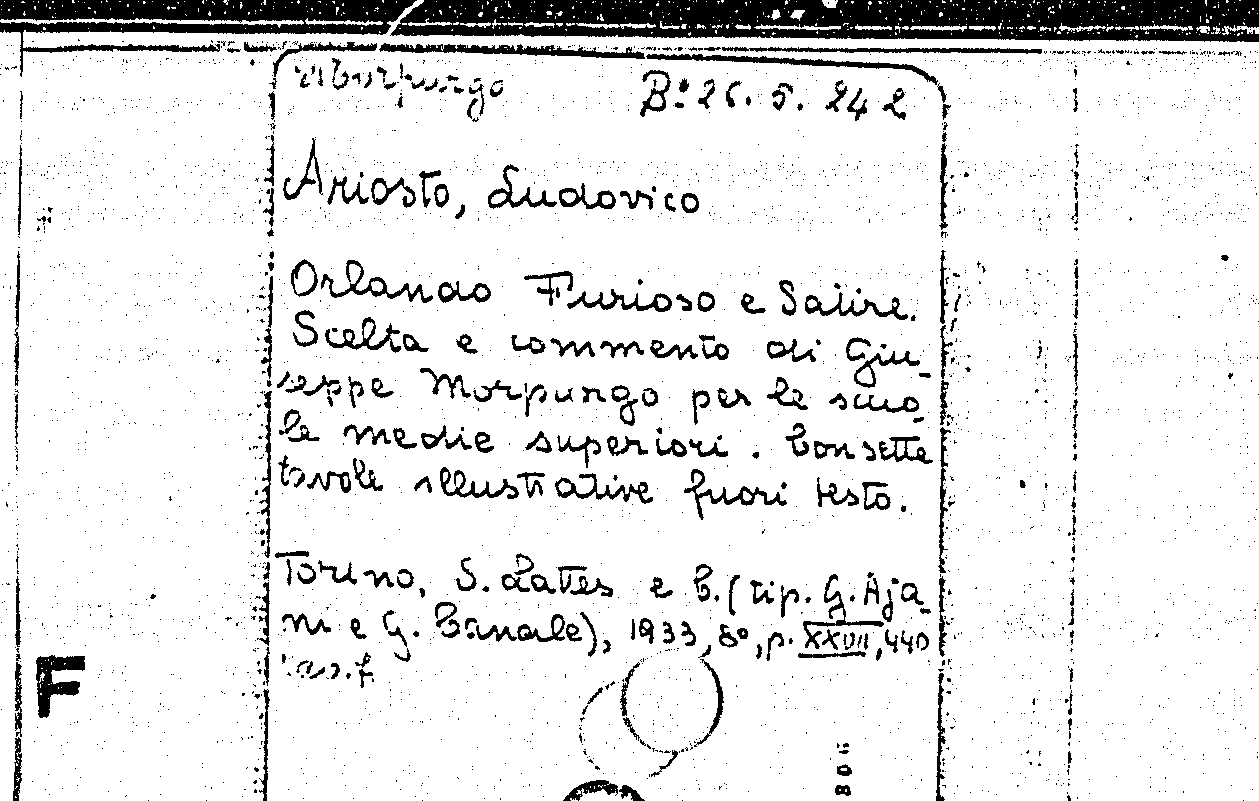 Morpurgo B.º 26. 5. 242
Ariosto, Ludovico
Orlando Furioso e Satire.
Scelta e commento di Giu-
seppe Morpurgo per le scuo-
le medie superiori. Con sette
tavole illustrative fuori testo.
Torino, S. Lattes e C. (tip. G. Aja-
ni e G. Canale), 1933, 8º, p. XXVIII, 440
F